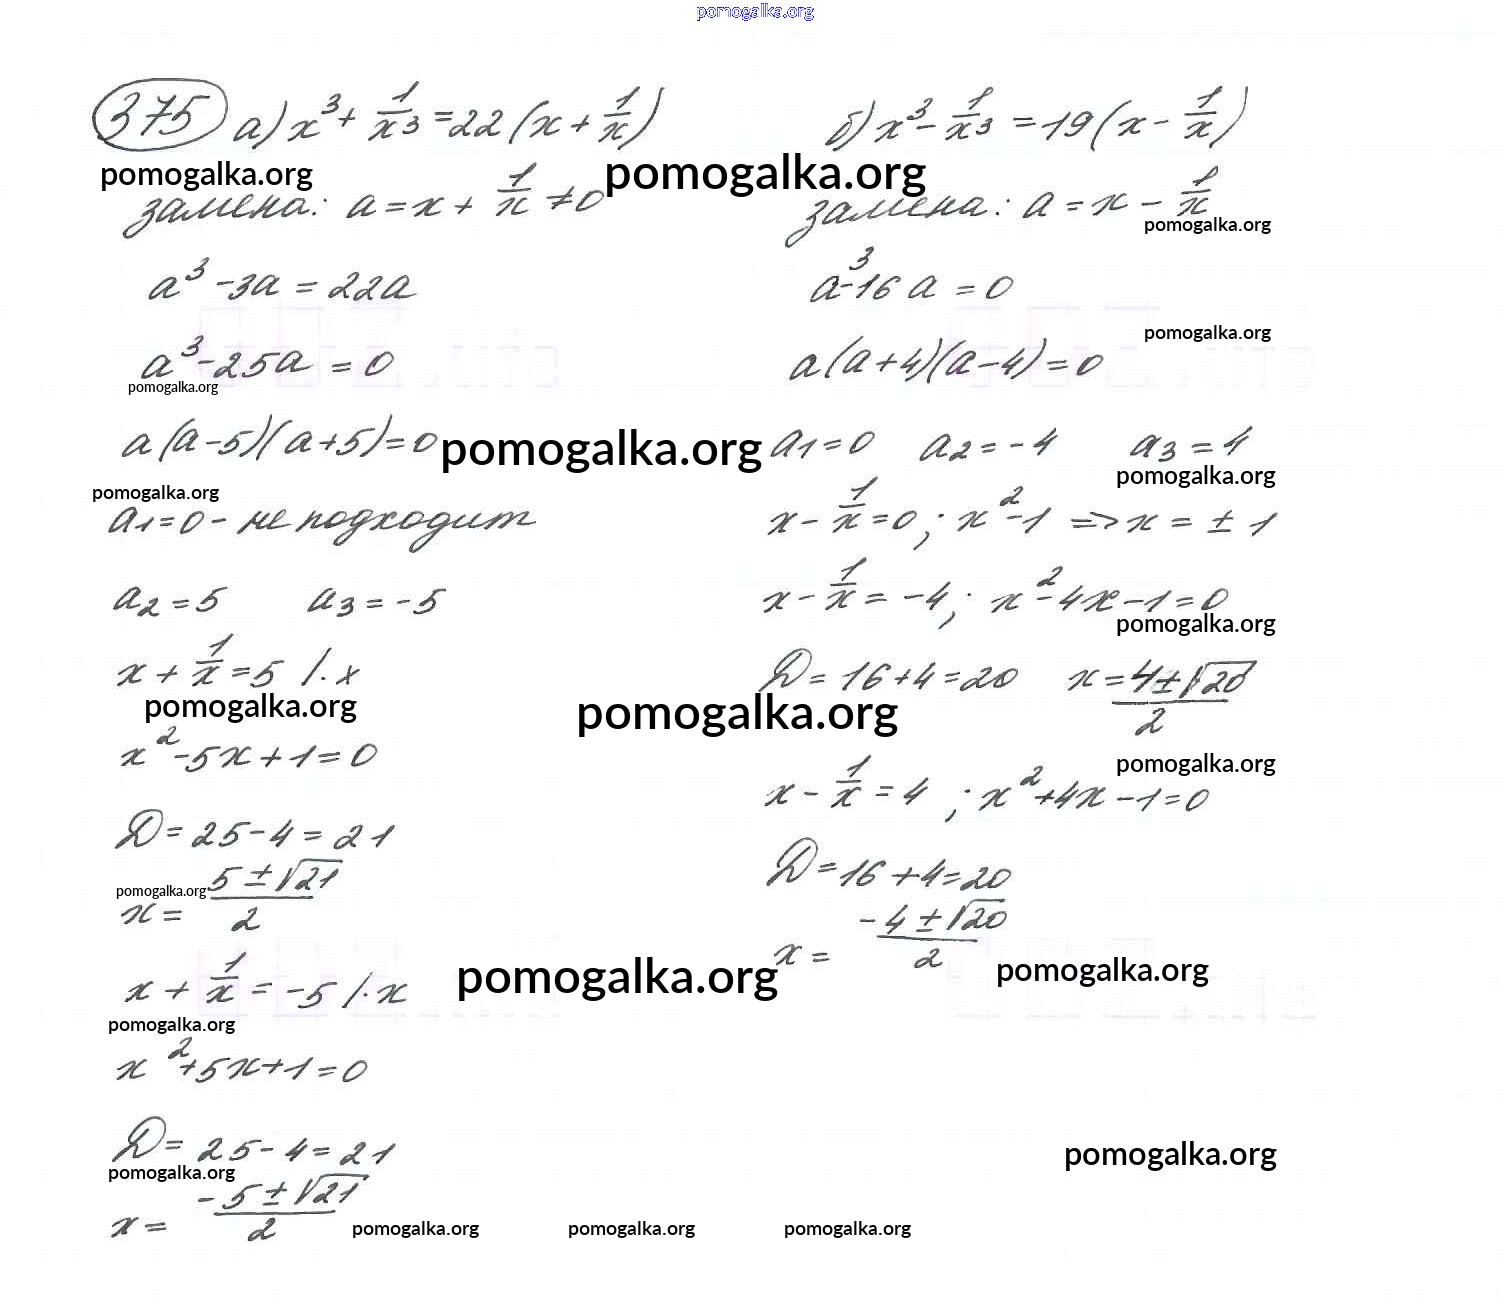 pomogalka.org
375 а) x³ + 1/x³ = 22(x + 1/x)
pomogalka.org
замена: a = x + 1/x ≠ 0
a³ - 3a = 22a
a³ - 25a = 0
pomogalka.org
a(a - 5)(a + 5) = 0
pomogalka.org
pomogalka.org
a₁ = 0 - не подходит
a₂ = 5 a₃ = -5
x + 1/x = 5 /·x
pomogalka.org
x² - 5x + 1 = 0
D = 25 - 4 = 21
pomogalka.org
x = (5 ± √21)/2
x + 1/x = -5 /·x
pomogalka.org
pomogalka.org
x² + 5x + 1 = 0
D = 25 - 4 = 21
pomogalka.org
x = (-5 ± √21)/2
pomogalka.org pomogalka.org pomogalka.org
б) x³ - 1/x³ = 19(x - 1/x)
pomogalka.org
замена: a = x - 1/x
pomogalka.org
a³ - 16a = 0
pomogalka.org
a(a + 4)(a - 4) = 0
a₁ = 0 a₂ = -4 a₃ = 4
pomogalka.org
x - 1/x = 0; x² - 1 => x = ± 1
x - 1/x = -4; x² - 4x - 1 = 0
pomogalka.org
D = 16 + 4 = 20 x = (4 ± √20)/2
pomogalka.org
pomogalka.org
x - 1/x = 4; x² + 4x - 1 = 0
D = 16 + 4 = 20
x = (-4 ± √20)/2
pomogalka.org
pomogalka.org